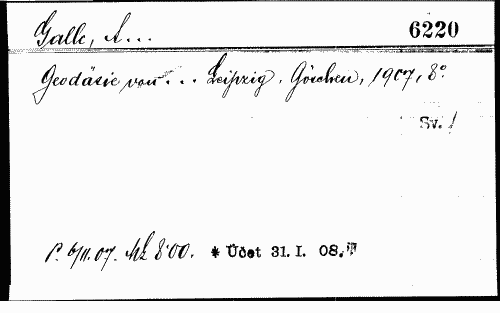 Galle, A... 6220
Geodäsie von... Leipzig, Göschen, 1907, 8°.
Sv. /
P. 6/11.07. Mk 8'00. * Účet 31. I. 08.